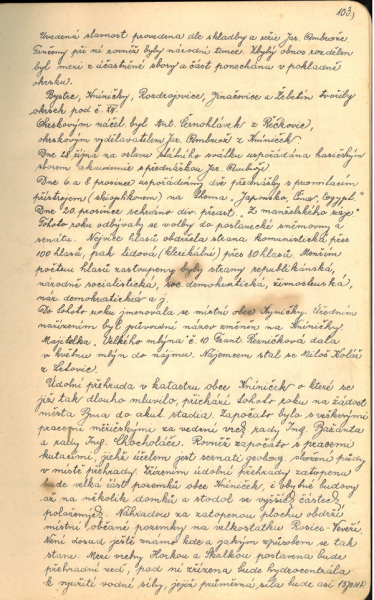 103.
Uvedená slavnost provedena dle skladby a režie Jar. Ambrože
Tančeny při ní rovněž byly národní tance. Zbylý obnos rozdělen
byl mezi zúčastněné sbory a část ponechána v pokladně
okrsku.
Bystrc, Kníničky, Rozdrojovice, Jinačovice a Žebětín tvořily
okrsek pod č.
Okrskovým náčel. byl Ant. Černohlávek z Řečkovic,
okrskovým vzdělavatelem Jar. Ambrož z Kníniček.
Dne 28. října na oslavu státního svátku uspořádána hasičským
sborem akademie s přednáškou Jar.
Dne 6. a 8. prosince uspořádány dvě přednášky s promítacím
přístrojem (skioptikonem) na Japonsko, Čína, Egypt.
Dne 20. prosince sehráno div. předst. Z manželského ráje"
Tohoto roku odbývaly se volby do poslanecké sněmovny a
senátu. Nejvíce hlasů obdržela strana komunistická přes
100 hlasů, pak lidová (klerikální) přes 80 hlasů. Menším
počtem hlasů zastoupeny byly strany republikánská,
národně socialistická, soc. demokratická, živnostenská,
nár. demokratická a j.
Do tohoto roku jmenovala se místní obec Knyničky. Úředním
nařízením byl původní název změněn na Kníničky.
Majitelka Velkého mlýna č. 10 Frant. Řezníčková dala
v květnu mlýn do nájmu. Nájemcem stal se Miloš Kolář
z Letovic.
Údolní přehrada v katastru obce Kníniček o které se
již tak dlouho mluvilo, přichází tohoto roku na žádost
města Brna do akut. stadia. Započalo bylo s veškerými
pracemi měřičskými za vedení vrch. rady Ing. Bažanta
a rady Ing. Rovněž započato s pracemi
kutacími, jejíž účelem jest seznati geolog. složení půdy
v místě přehrady. Zřízením údolní přehrady zatopena
bude velká část pozemků obce Kníniček, i obytné budovy
až na několik domků a stodol ve vyšších částech
položených. Náhradou za zatopenou plochu obdrží
místní občané pozemky na velkostatku Rosice-Veveří.
Není dosud ještě známo kde a jakým způsobem se tak
stane. Mezi vrchy Horkou a Skalkou postavena bude
přehradní zeď, pod ní zřízena bude hydrocentrála
k využití vodní síly, jejíž průměrná síla bude asi HP.